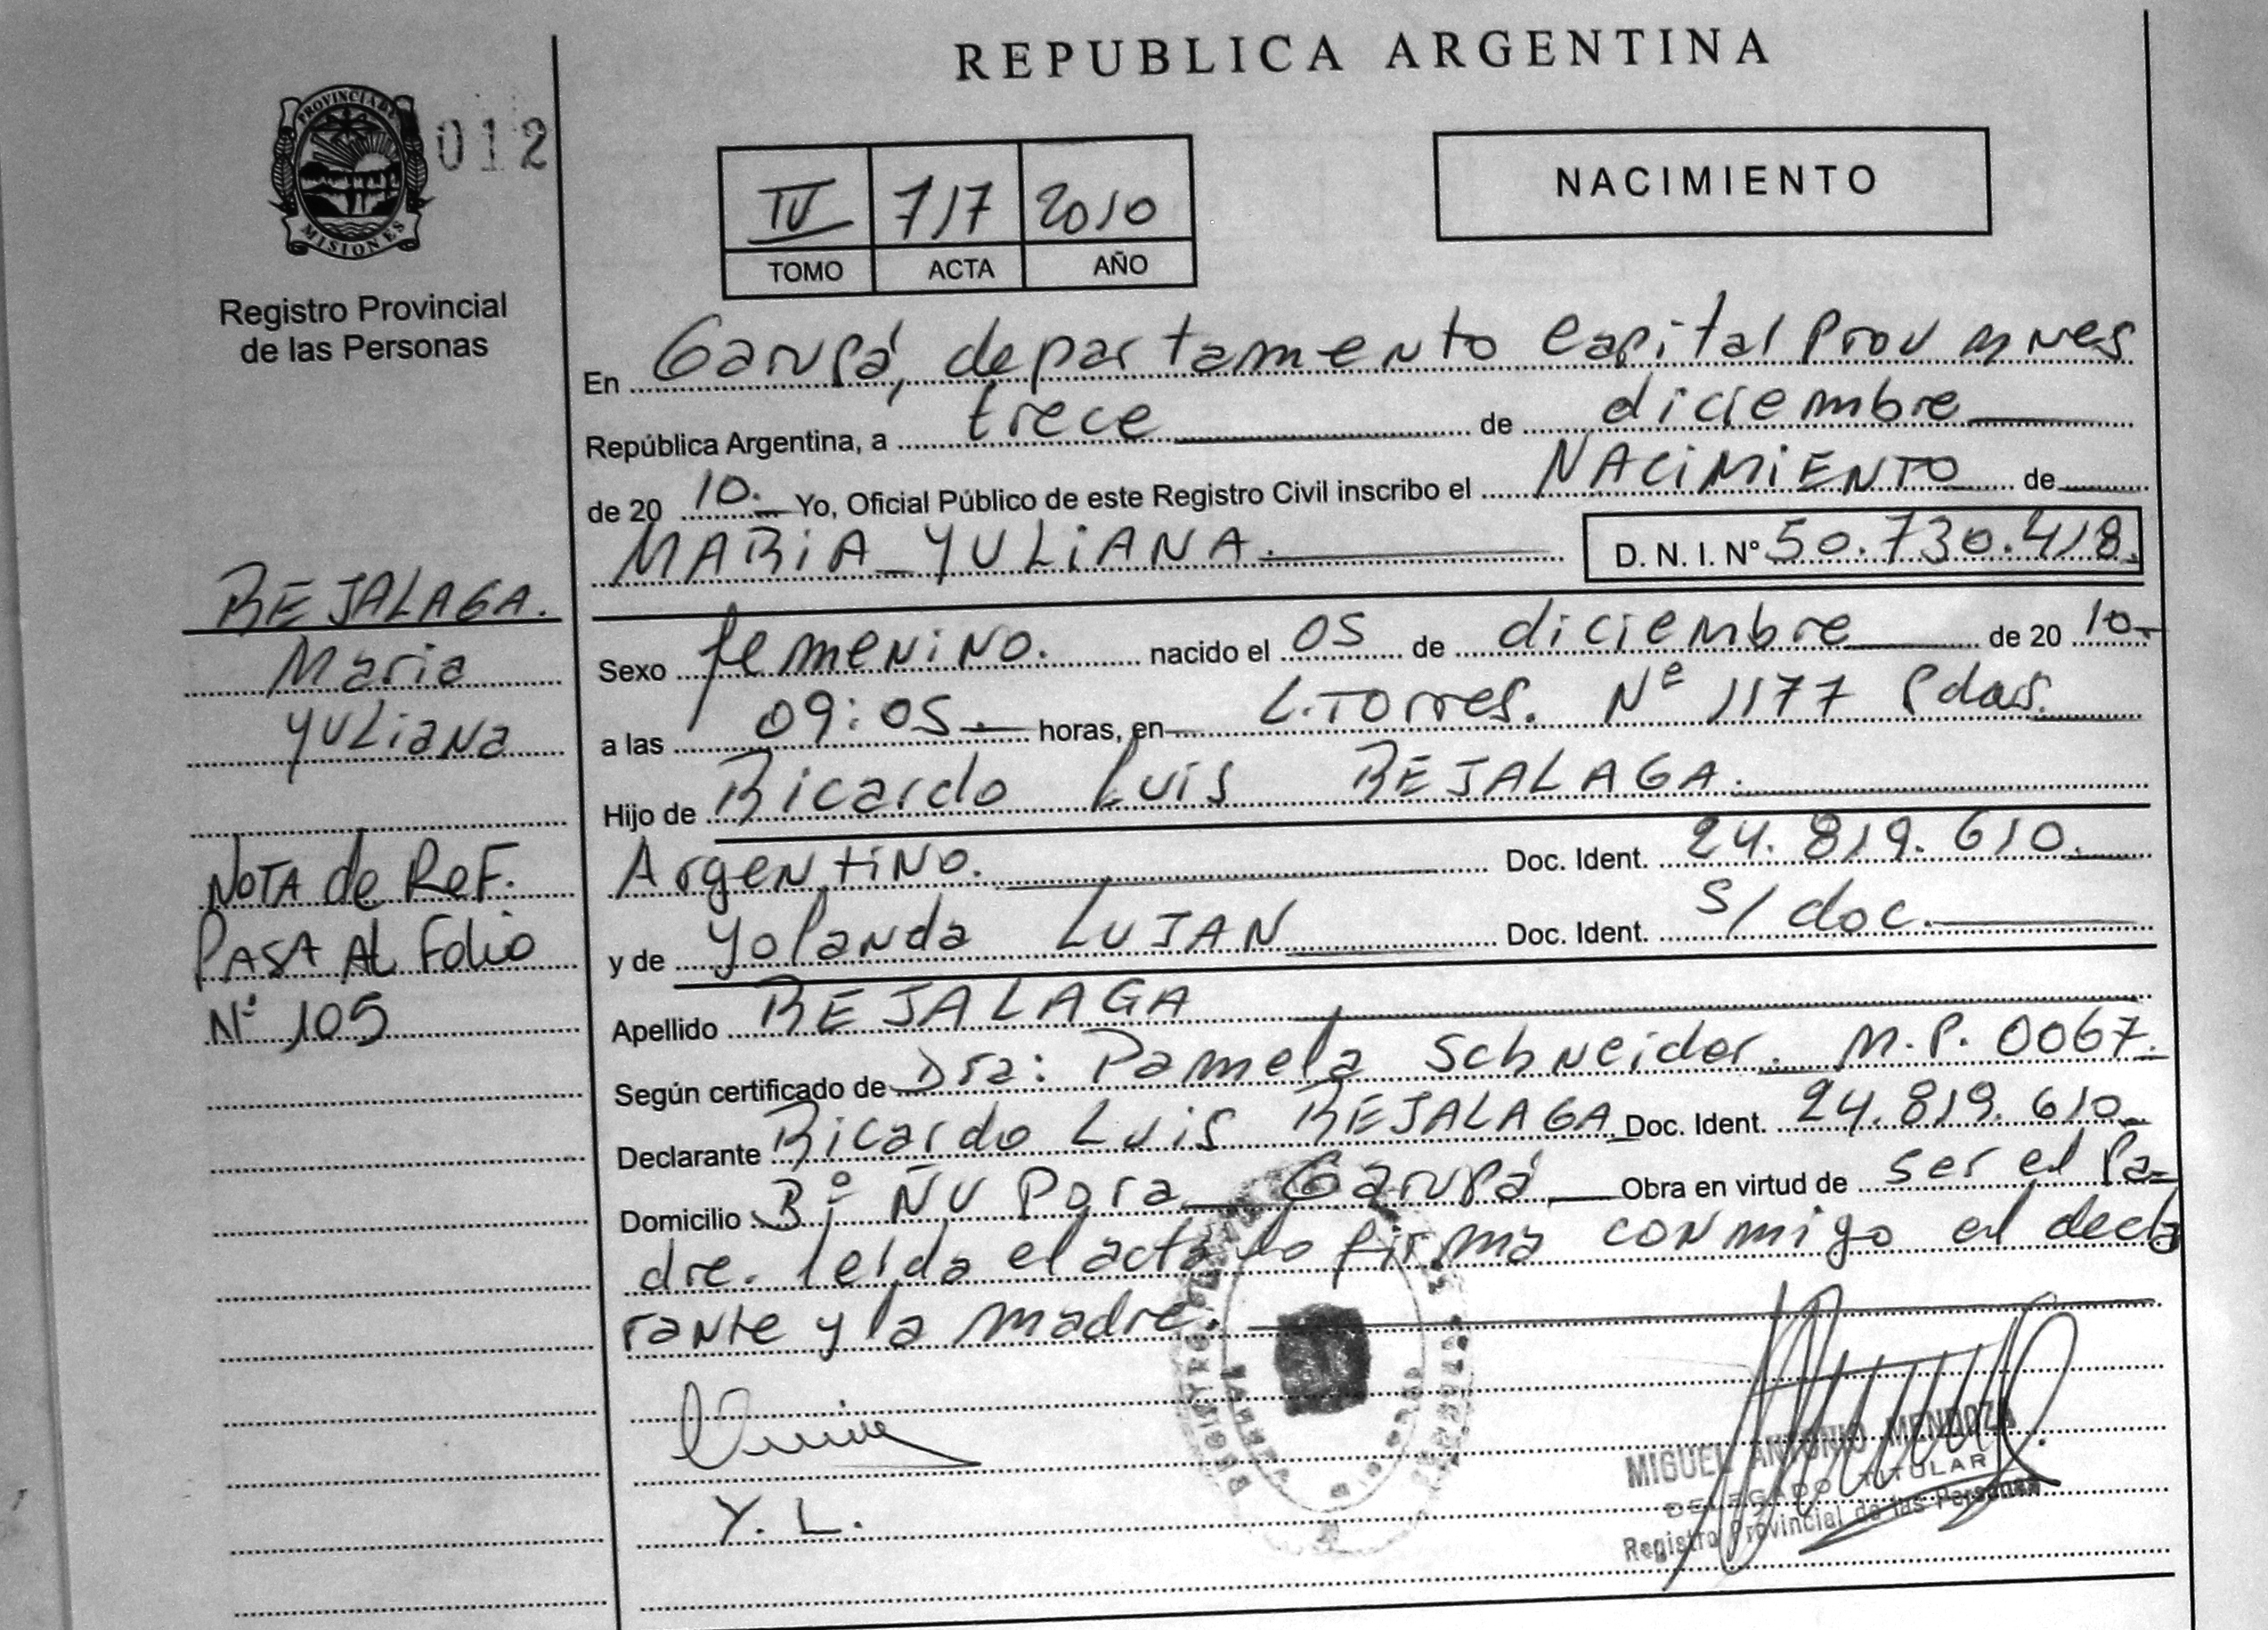 REPUBLICA ARGENTINA
PROVINCIA DE
MISIONES
012
Registro Provincial
de las Personas
IV 717 2010
TOMO ACTA AÑO
NACIMIENTO
En Garupá, departamento Capital Prov Mnes
República Argentina, a trece de diciembre
de 20 10. Yo, Oficial Público de este Registro Civil inscribo el NACIMIENTO de
MARIA YULIANA. D. N. I. Nº 50.730.418.
Sexo femenino. nacido el 05 de diciembre de 20 10.
a las 09:05. horas, en L. Torres. Nº 1177 Pdas.
Hijo de Ricardo Luis BEJALAGA.
Argentino. Doc. Ident. 24.819.610.
y de Yolanda LUJAN Doc. Ident. S/doc.
Apellido BEJALAGA
Según certificado de Dra: Pamela Schneider. M.P. 0067.
Declarante Ricardo Luis BEJALAGA Doc. Ident. 24.819.610
Domicilio Bº ÑU Pora Garupá Obra en virtud de ser el Pa=
dre. leida el acta lo firma conmigo el decla
rante y la madre.
Y. L.
MIGUEL ANTONIO MENDOZA
DELEGADO TITULAR
Registro Provincial de las Personas
BEJALAGA.
Maria
Yuliana
NOTA de REF.
PASA AL Folio
Nº 105